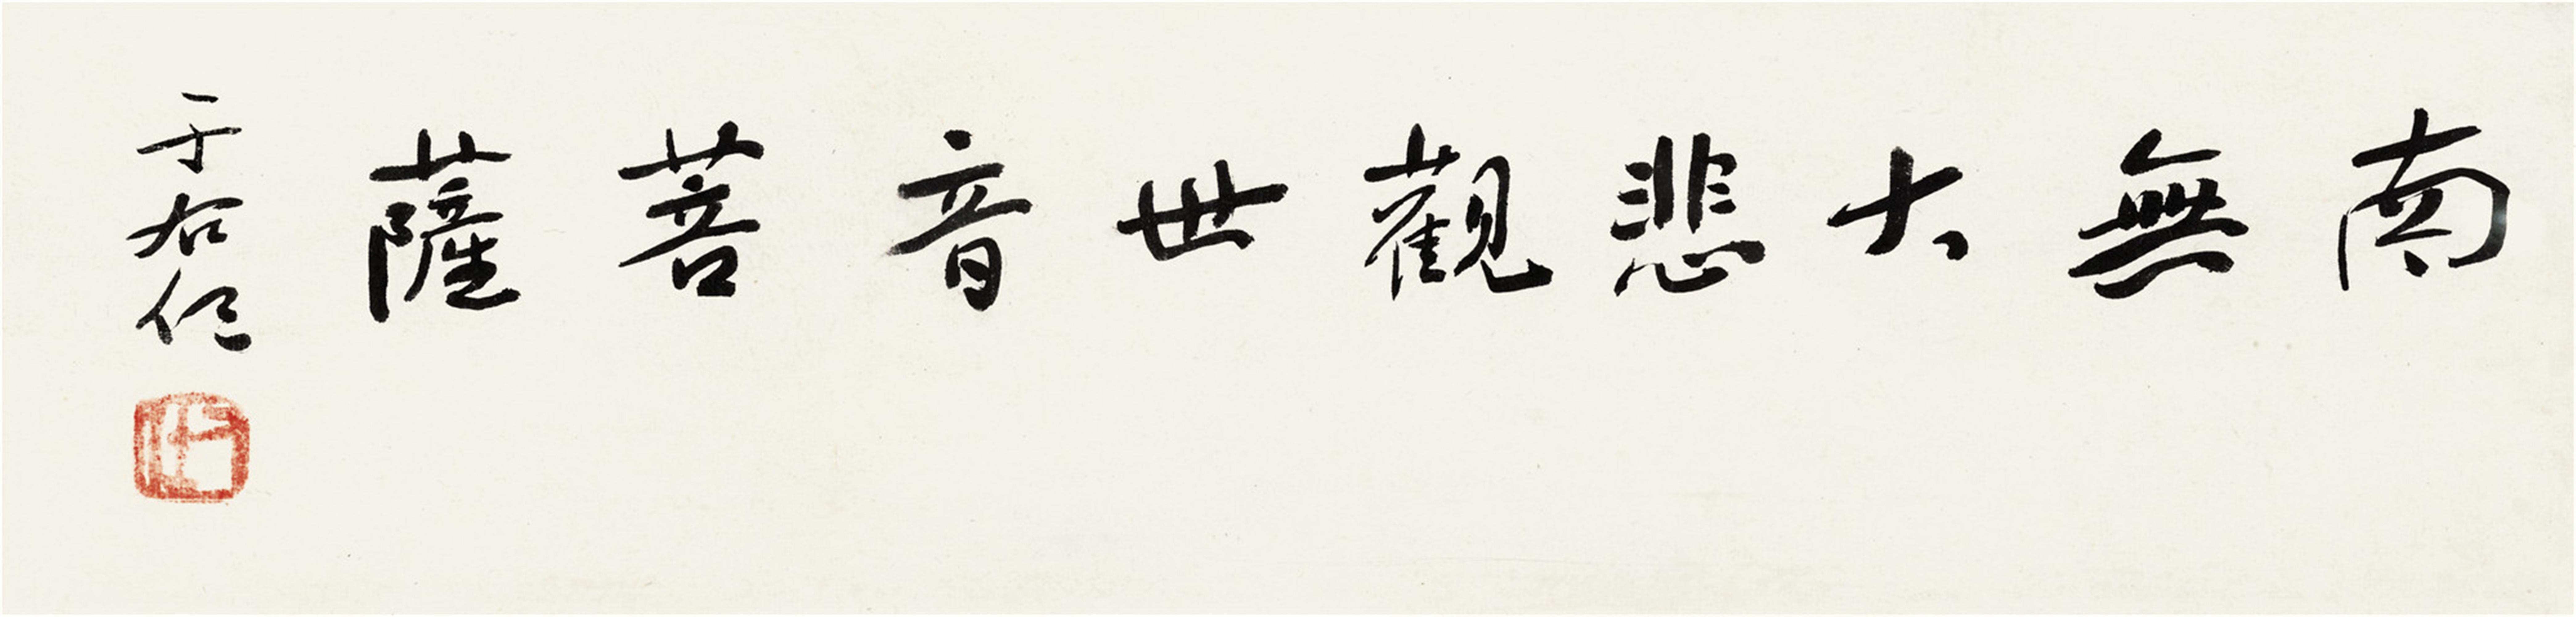 南無大悲觀世音菩薩
于右任